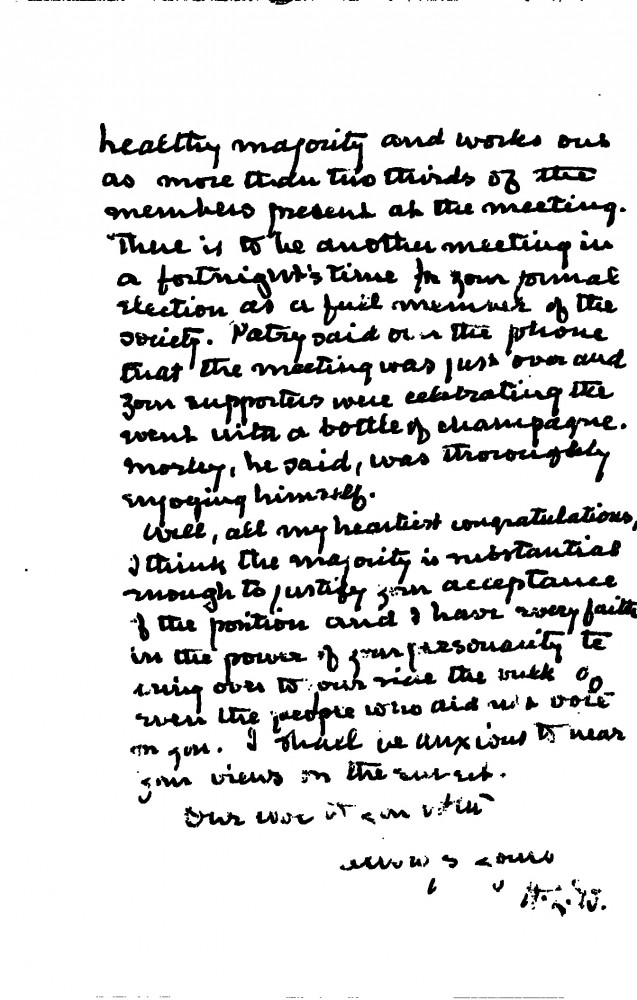 healthy majority and works out
as more than two thirds of the
members present at the meeting.
There is to be another meeting in
a fortnight's time for your formal
election as a full member of the
society. Patry said over the phone
that the meeting was just over and
your supporters were celebrating the
event with a bottle of champagne.
Morley, he said, was thoroughly
enjoying himself.
Well, all my heartiest congratulations,
I think the majority is substantial
enough to justify your acceptance
of the position and I have every faith
in the power of your personality to
bring over to your side the bulk of
even the people who did not vote
for you. I shall be anxious to hear
your views on the subject.
Our love to you both
Always yours